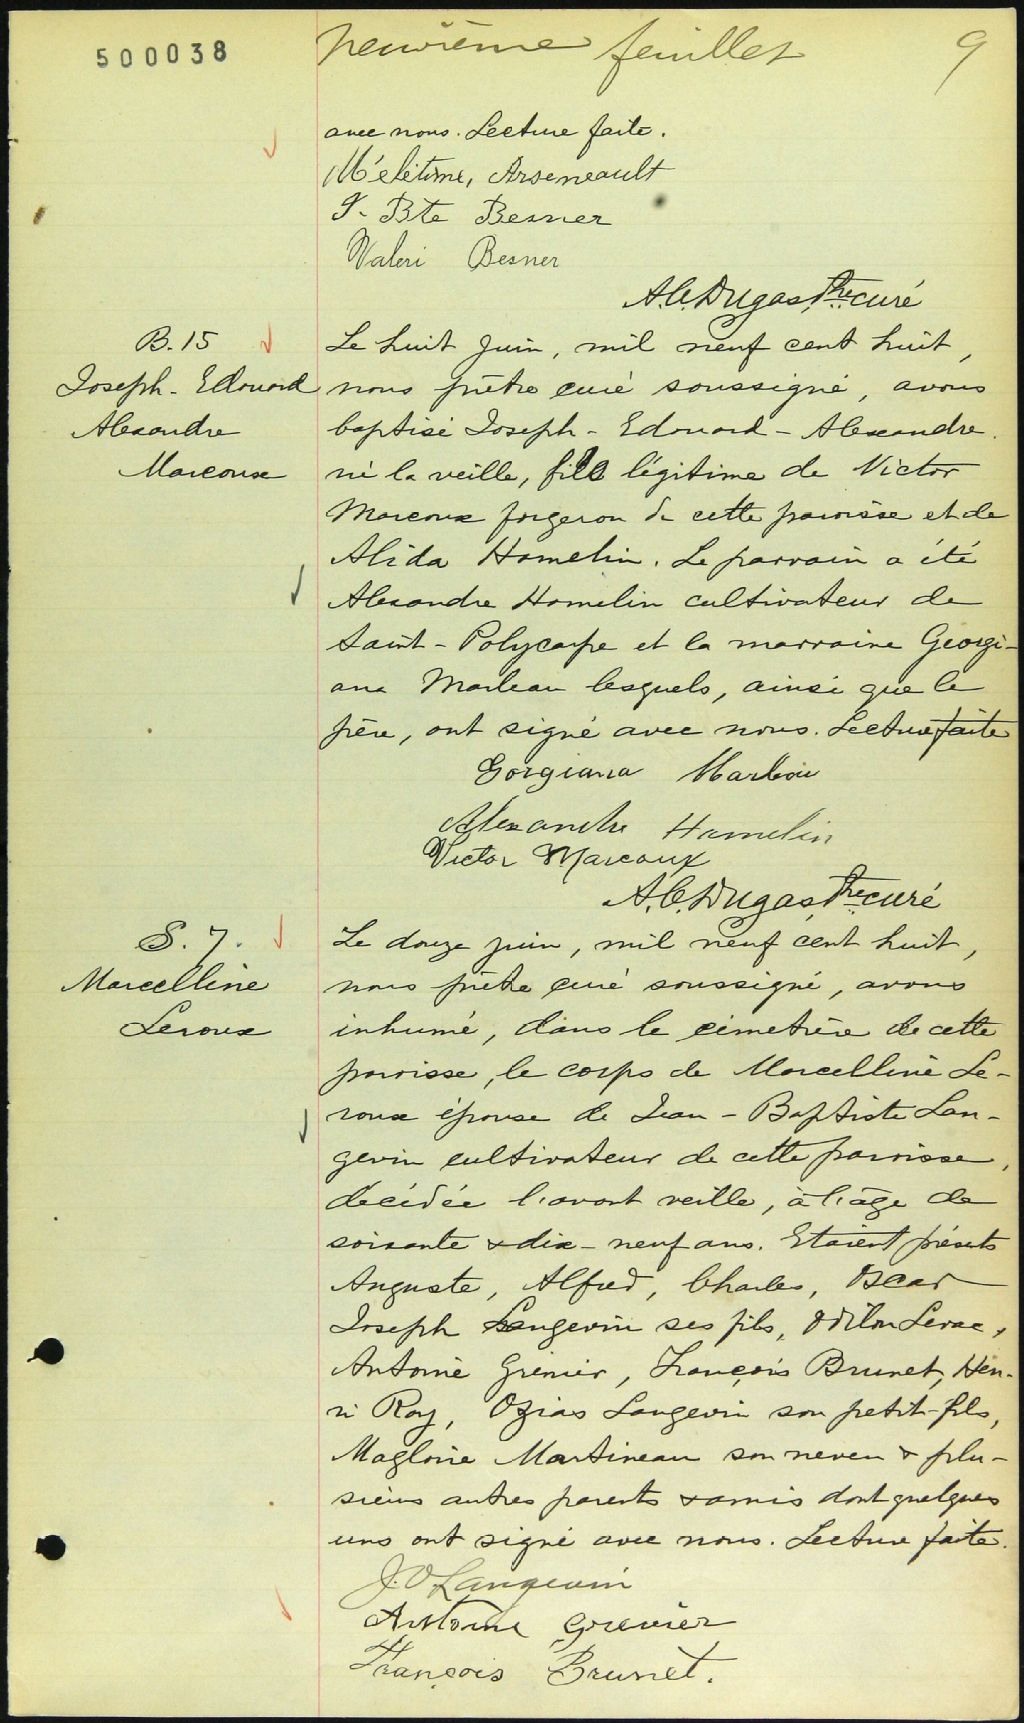 500038
neuvième feuillet 9
avec nous. Lecture faite.
Mélétime, Arseneault
J. Bte Besner
Valeri Besner
A.C. Dugas, Ptre curé
B. 15
Joseph-Edouard
Alexandre
Marcoux
Le huit juin, mil neuf cent huit,
nous prêtre curé soussigné, avons
baptisé Joseph-Edouard-Alexandre
né la veille, fils légitime de Victor
Marcoux forgeron de cette paroisse et de
Alida Hamelin. Le parrain a été
Alexandre Hamelin cultivateur de
Saint-Polycarpe et la marraine Georgi-
ana Marleau lesquels, ainsi que le
père, ont signé avec nous. Lecture faite
Gorgiana Marleau
Alexandre Hamelin
Victor Marcoux
A.C. Dugas, Ptre curé
S. 7.
Marcelline
Leroux
Le douze juin, mil neuf cent huit,
nous prêtre curé soussigné, avons
inhumé, dans le cimetière de cette
paroisse, le corps de Marcelline Le-
roux épouse de Jean-Baptiste Lan-
gevin cultivateur de cette paroisse,
décédée l'avant veille, à l'âge de
soixante & dix-neuf ans. Etaient présents
Auguste, Alfred, Charles, Oscar
Joseph Langevin ses fils, Odilon Levac,
Antoine Grenier, François Brunet, Hen-
ri Roy, Ozias Langevin son petit-fils,
Magloire Martineau son neveu & plu-
sieurs autres parents & amis dont quelques
uns ont signé avec nous. Lecture faite.
J.O Langevin
Antoine Grenier
François Brunet.